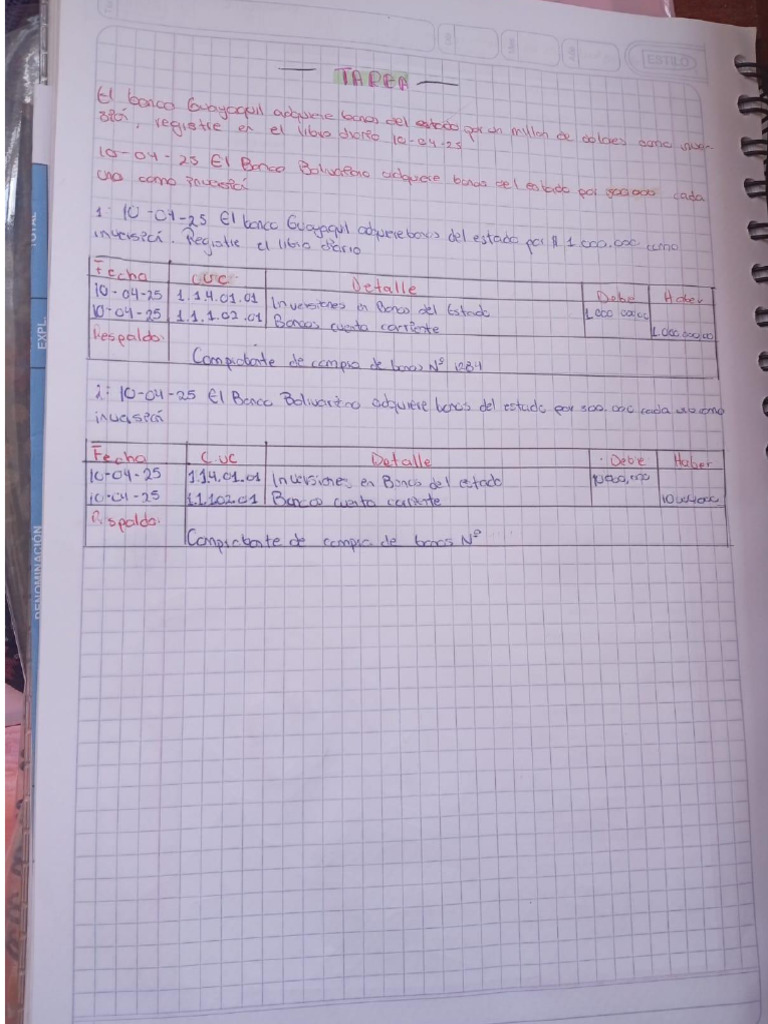 ESTILO
TAREA
El banco Guayaquil adquiere bonos del estado por un millon de dolares como inver-
sión, registre en el libro diario 10-04-25
10-04-25 El Banco Bolivariano adquiere bonos del estado por 500.000 cada
uno como inversión
1: 10-04-25 El banco Guayaquil adquiere bonos del estado por $ 1.000.000 como
inversión. Registre el libro diario
Fecha C.U.C. Detalle Debe Haber
10-04-25 1.1.4.01.01 Inversiones en Banco del Estado 1.000.000,00
10-04-25 1.1.1.02.01 Bancos cuenta corriente 1.000.000,00
Respaldo:
Comprobante de compra de bonos Nº 1284
2: 10-04-25 El Banco Bolivariano adquiere bonos del estado por 500.000 cada uno como
inversión
Fecha C.UC Detalle Debe Haber
10-04-25 1.14.01.01 Inversiones en Banco del estado
10-04-25 1.1.102.01 Banco cuenta corriente
Respaldo:
Comprobante de compra de bonos Nº
TOTAL
EXPL.
DENOMINACIÓN